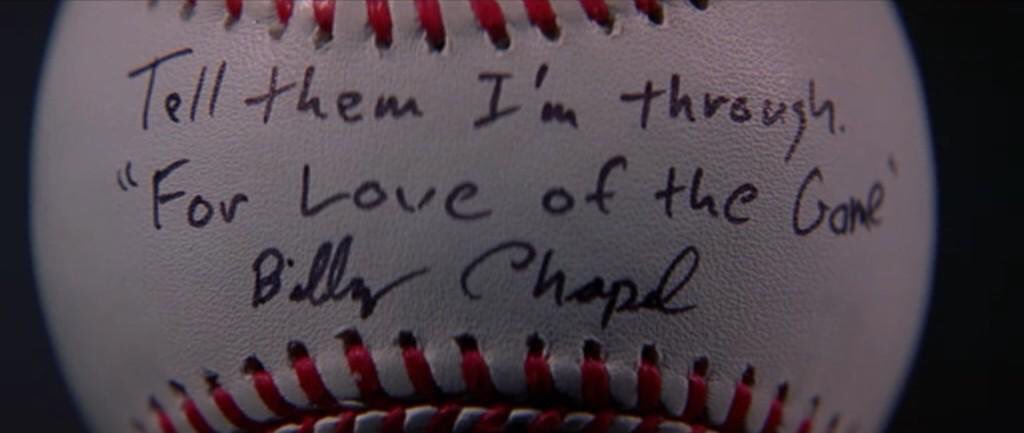 Tell them I'm through.
"For Love of the Game"
Billy Chapel